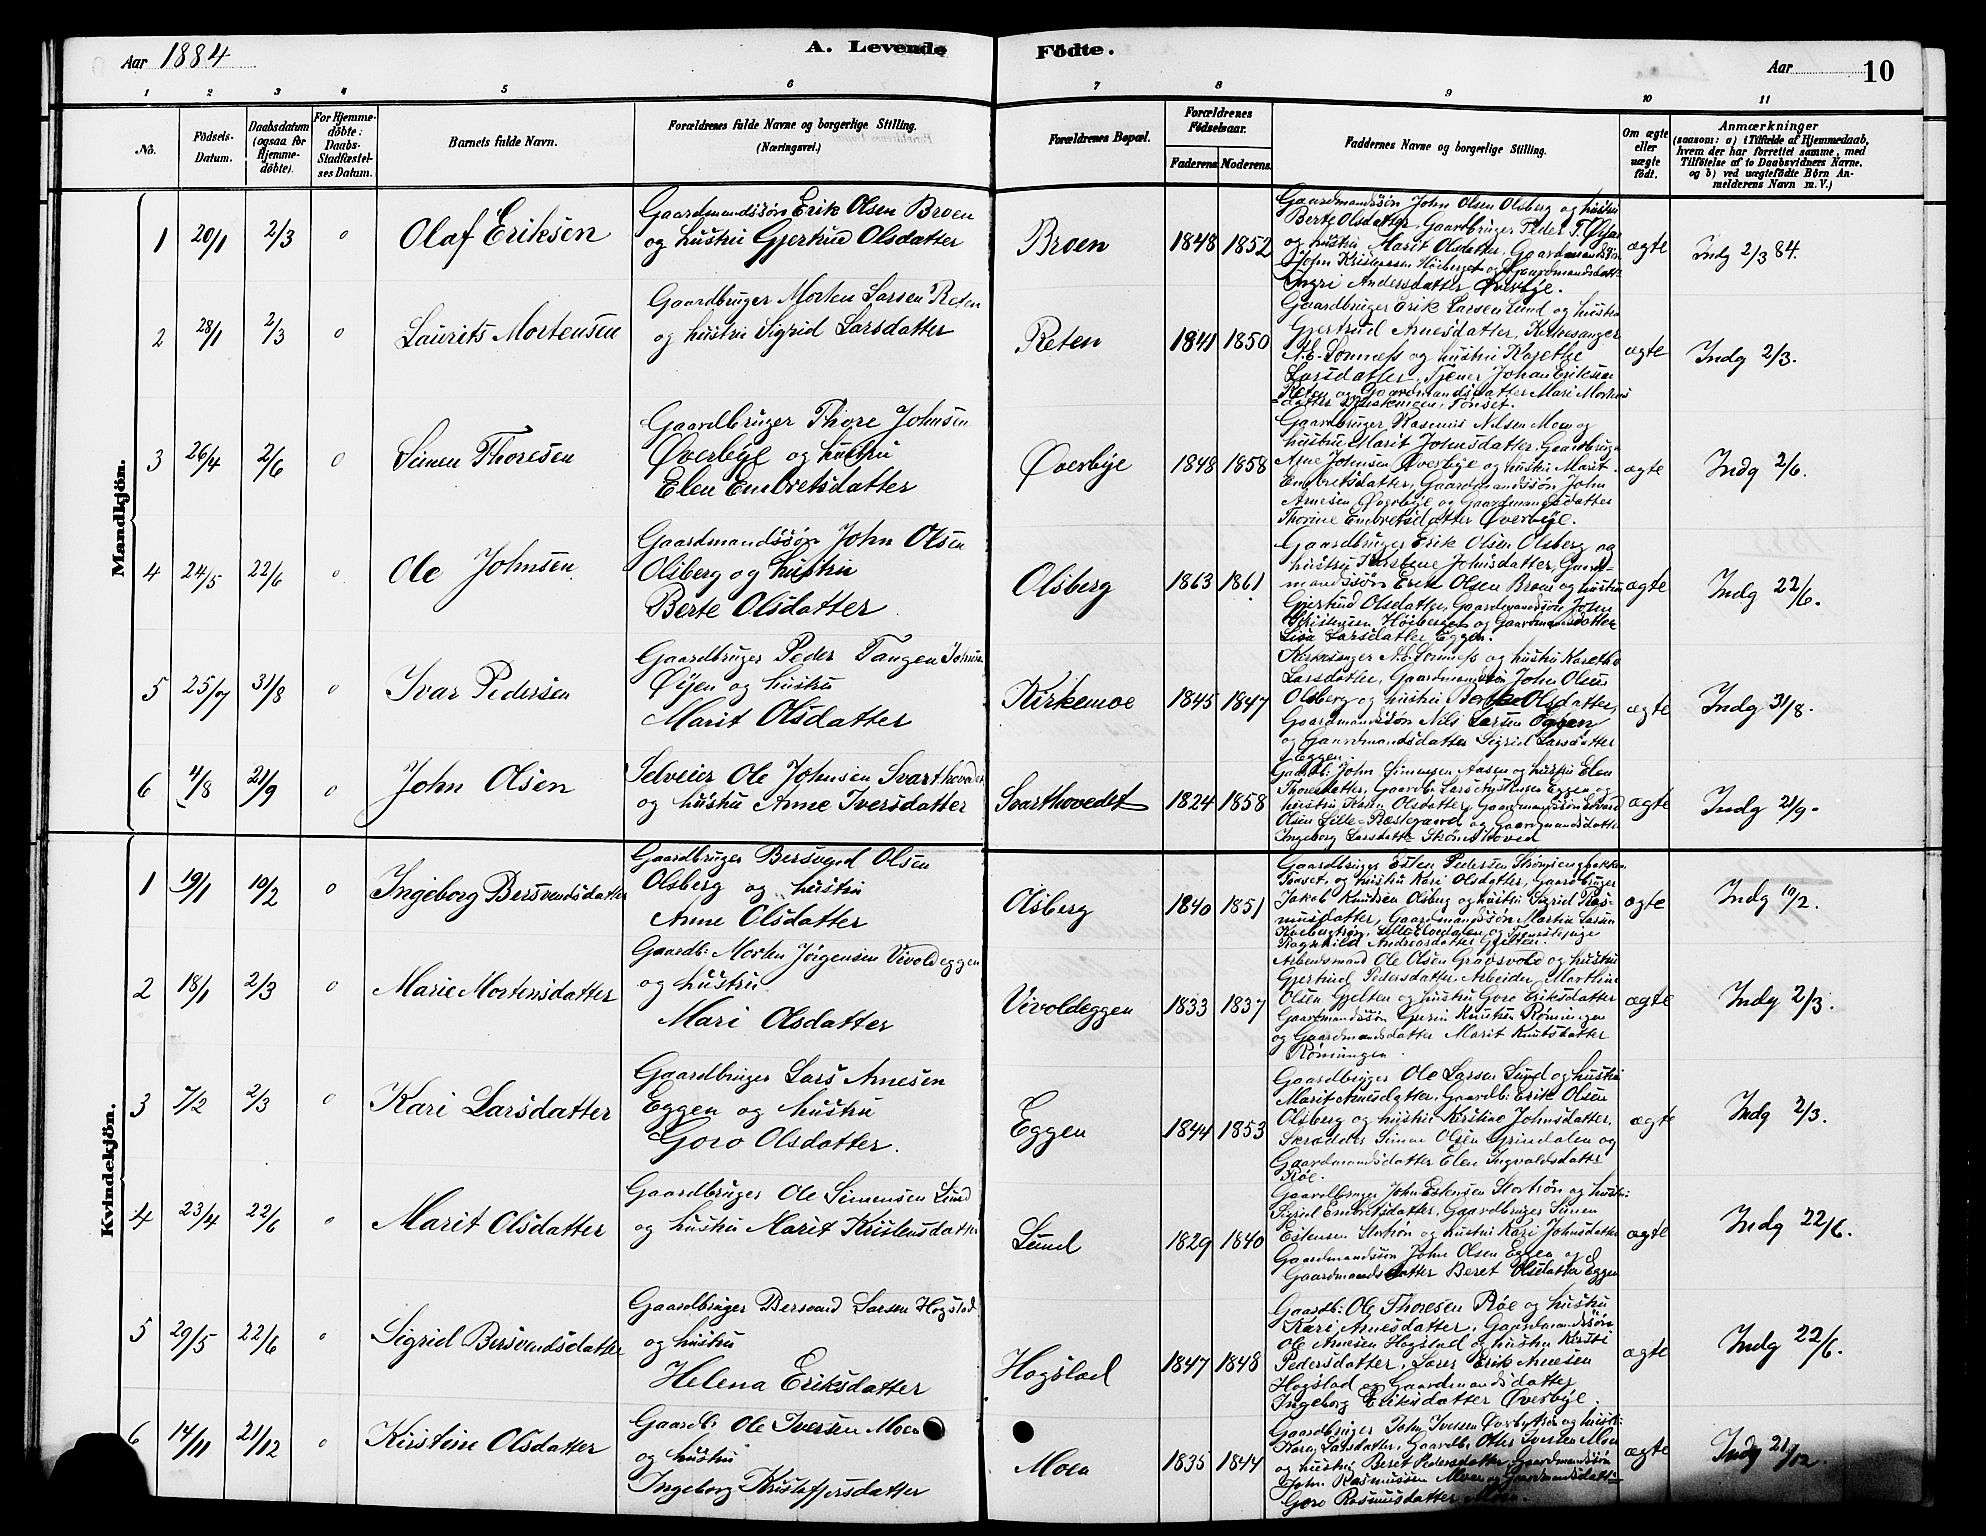 Aar 1884
A. Levende Födte.
Aar
10
1 2 3 4 5 6 7 8 9 10 11
No.
Födsels-Datum.
Daabsdatum (ogsaa for Hjemme-döbte).
For Hjemme-döbte: Daabs-Stadfæstel-ses Datum.
Barnets fulde Navn.
Forældrenes fulde Navne og borgerlige Stilling. (Næringsvei.)
Forældrenes Bopæl.
Forældrenes Födselsaar.
Faderens. Moderens.
Faddernes Navne og borgerlige Stilling.
Om ægte eller uægte födt.
Anmærkninger
(saasom: a) i Tilfælde af Hjemmedaab,
hvem der har forrettet samme, med
Tilföielse af to Daabsvidners Navne.
og b) ved uægtefödte Börn An-
melderens Navn m. V.)
Mandkjön.
1 20/1 2/3 0 Olaf Eriksen
Gaardmandssøn Erik Olsen Broen
og hustru Gjertrud Olsdatter
Broen 1848 1852
Gaardmandssøn John Olsen Olsberg og hustru
Berte Olsdatter, Gaardbruger Peder T. Øijen
og hustru Marit Olsdatter, Gaardmandssøn
John Kristensen Høiberget og Gaardmandsdatt.
Ingri Andersdatter Øverbye.
ægte Indg 2/3 84.
2 28/1 2/3 0 Laurits Mortensen
Gaardbruger Morten Larsen Reten
og hustru Sigrid Larsdatter
Reten 1841 1850
Gaardbruger Erik Larsen Lund og hustru
Gjertrud Arnesdatter, Kirkesanger
A.E. Sonness og hustru Karethe
Larsdatter, Tjener Johan Eriksen
Reten og Gaardmandsdatter Mari Mortens
datter Tønset.
ægte Indg 2/3.
3 26/4 2/6 0 Simen Thoresen
Gaardbruger Thore Johnsen
Øverbye og hustru
Elen Embretsdatter
Øverbye 1848 1858
Gaardbruger Rasmus Nilsen Moen og
hustru Marit Johnsdatter, Gaardbruger
Arne Johnsen Øverbye og hustru Marit
Embretsdatter, Gaardmandssøn John
Arnesen Øverbye og Gaardmandsdatter
Thorine Embretsdatter Øverbye.
ægte Indg 2/6.
4 24/5 22/6 0 Ole Johnsen
Gaardmandssøn John Olsen
Olsberg og hustru
Berte Olsdatter
Olsberg 1863 1861
Gaardbruger Erik Olsen Olsberg og
hustru Kirstine Johnsdatter, Gaard-
mandssøn Erik Olsen Broen og hustru
Gjertrud Olsdatter, Gaardmandssøn John
Kristensen Høiberget og Gaardmandsdatter
Lisa Larsdatter Eggen.
ægte Indg 22/6.
5 25/7 31/8 0 Ivar Pedersen
Gaardbruger Peder Tangen Johnsen
Øijen og hustru
Marit Olsdatter
Kirkemoe 1845 1847
Kirkesanger A.E. Sonness og hustru Karethe
Larsdatter, Gaardmandssøn John Olsen
Olsberg og hustru Berthe Olsdatter,
Gaardmandssøn Nils Larsen Eggen
og Gaardmandsdatter Sigrid Larsdatter
Eggen.
ægte Indg 31/8.
6 4/8 21/9 0 John Olsen
Selveier Ole Johnsen Svarthovedet
og hustru Anne Iversdatter
Svarthovedet 1824 1858
Gaardb: John Simensen Aasen og hustru Elen
Thoresdatter, Gaardb. Lars Eggen og
hustru Karen Olsdatter, Gaardmandssøn
Olsen Lille-Præstegaard og Gaardmandsdatter
Ingeborg Larsdatter
ægte Indg 21/9.
Kvindekjön.
1 19/1 10/2 0 Ingeborg Bersvendsdatter
Gaardbruger Bersvend Olsen
Olsberg og hustru
Anne Olsdatter
Olsberg 1840 1851
Gaardbruger Esten Pedersen Strømengbakken
Tønset, og hustru Kari Olsdatter, Gaardbruger
Jakob Knudsen Olsberg og hustru Sigrid Ras-
musdatter, Gaardmandssøn Martin Larsen
Lille Elvedalen, og Tjenestepige
Ragnhild Andreasdatter Gjelten.
ægte Indg 10/2.
2 18/1 2/3 0 Marie Mortensdatter
Gaardb: Morten Jørgensen Vivoldeggen
og hustru
Mari Olsdatter
Vivoldeggen 1833 1837
Arbeidsmand Ole Olsen Graavold og hustru
Gjertrud Pedersdatter, Arbeider Marthin
Olsen Gjelten og hustru Goro Eriksdatter
Gaardmandssøn Knutsen Røningen
og Gaardmandsdatter Marit Knutsdatter
Røningen.
ægte Indg 2/3.
3 7/2 2/3 0 Kari Larsdatter
Gaardbruger Lars Arnesen
Eggen og hustru
Goro Olsdatter.
Eggen 1844 1853
Gaardbruger Ole Larsen Lund og hustru
Marit Arnesdatter, Gaardb: Erik Olsen
Olsberg og hustru Kirstine Johnsdatter,
Skrædder Simen Olsen Grindalen og
Gaardmandsdatter Elen Ingvaldsdatter
Røe.
ægte Indg 2/3.
4 23/4 22/6 0 Marit Olsdatter
Gaardbruger Ole Simensen Lund
og hustru Marit Kristensdatter
Lund 1829 1840
Gaardbruger John Estensen Stortrøn og hustru
Sigrid Embretsdatter, Gaardbruger Simen
Estensen Stortrøn og hustru Kari Johnsdatter
Gaardmandssøn John Olsen Eggen og
Gaardmandsdatter Beret Olsdatter Eggen
ægte Indg 22/6.
5 29/5 22/6 0 Sigrid Bersvendsdatter
Gaardbruger Bersvend Larsen Hogstad
og hustru
Helena Eriksdatter
Hogstad 1847 1848
Gaardb: Ole Thoresen Røe og hustru
Kari Arnesdatter, Gaardmandssøn
Ole Arnesen Hogstad og hustru Kirsti
Pedersdatter, Lærer Erik Arnesen
Hogstad og Gaardmandsdatter
Ingeborg Eriksdatter Øverbye.
ægte Indg 22/6.
6 14/11 21/12 0 Kirstine Olsdatter
Gaardb: Ole Iversen Moen
og hustru
Ingeborg Kristoffersdatter
Moen 1835 1844
Gaardbruger John Iversen og hustru
Karen Larsdatter, Gaardb. Otter Iversen Moen
og hustru Beret Pedersdatter, Gaardmandssøn
John Rasmussen Moen og Gaardmandsdatter
Goro Rasmusdatter Moen.
ægte Indg 21/12.